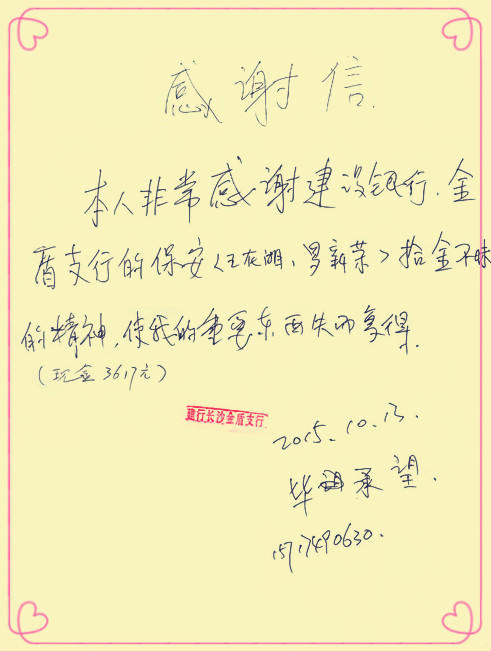 感谢信
本人非常感谢建设银行.金
盾支行的保安<王友湘、罗新荣>拾金不昧
的精神,使我的重要东西失而复得.
(现金3617元)
建行长沙金盾支行
2015.10.13.
毕承望.
15717490630.